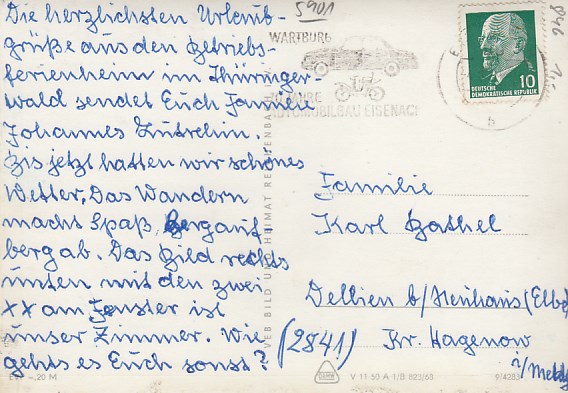 Die herzlichsten Urlaub-
grüße aus den Betriebs-
ferienheim im Thüringer-
wald sendet Euch Familie
Johannes
Bis jetzt hatten wir schönes
Wetter, Das Wandern
macht Spaß, Bergauf
bergab. Das Bild rechts
unten mit den zwei
XX am Fenster ist
unser Zimmer. Wie
gehts es Euch sonst?
5901
WARTBURG
JAHRE
AUTOMOBILBAU EISENACH
10
DEUTSCHE
DEMOKRATISCHE REPUBLIK
Familie
Karl Bathel
Dellien b/Neuhaus (Elbe)
(2841) Kr. Hagenow
i/Meckl
VEB BILD UND HEIMAT REICHENBACH
EVP –.20 M
V 11 50 A 1/B 823/68